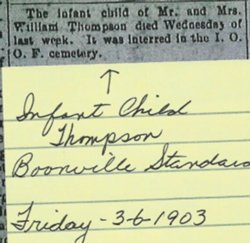 The infant child of Mr. and Mrs.
William Thompson died Wednesday of
last week. It was interred in the I. O.
O. F. cemetery.
Infant Child
Thompson
Boonville Standard
Friday - 3-6-1903